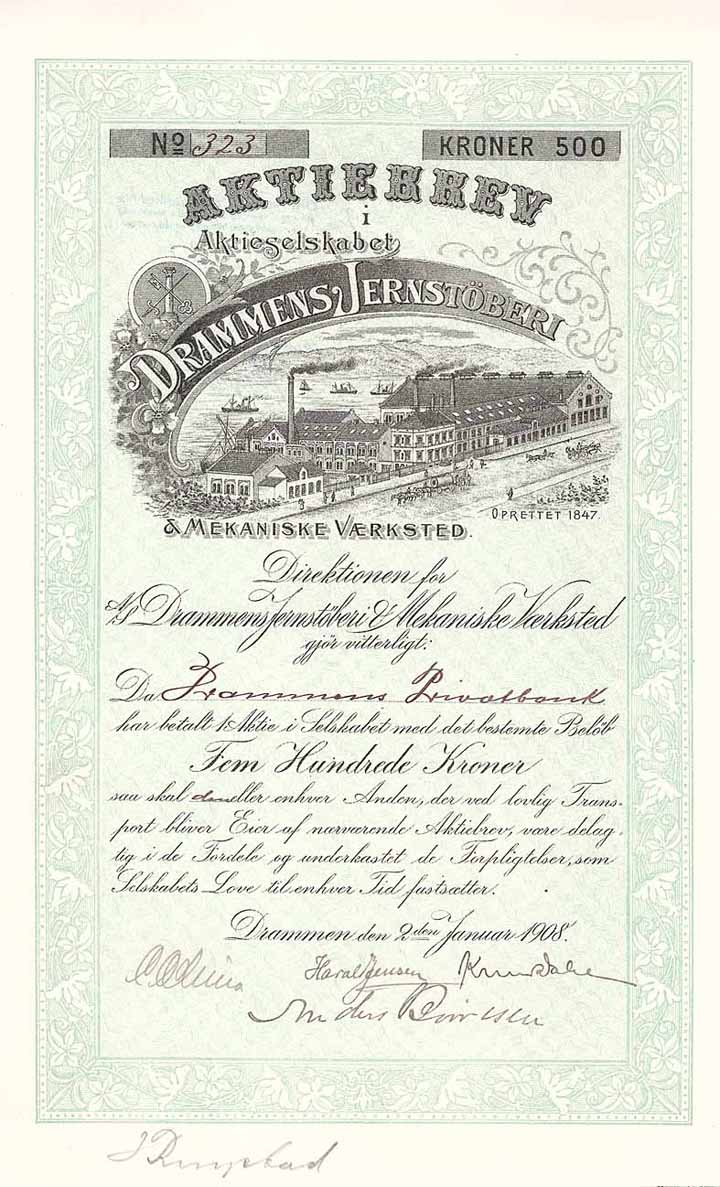 No 323
KRONER 500
AKTIEBREV
i
Aktieselskabet
DRAMMENS JERNSTÖBERI
& MEKANISKE VÆRKSTED.
OPRETTET 1847.
Direktionen for
A/S Drammens Jernstöberi & Mekaniske Værksted
gjör vitterligt:
Da Drammens Privatbank
har betalt 1 Aktie i Selskabet med det bestemte Belöb
Fem Hundrede Kroner
saa skal den eller enhver Anden, der ved lovlig Trans-
port bliver Eier af nærværende Aktiebrev, være delag-
tig i de Fordele og underkastet de Forpligtelser, som
Selskabets Love til enhver Tid fastsætter.
Drammen den 2den Januar 1908.
Harald Jensen
Anders